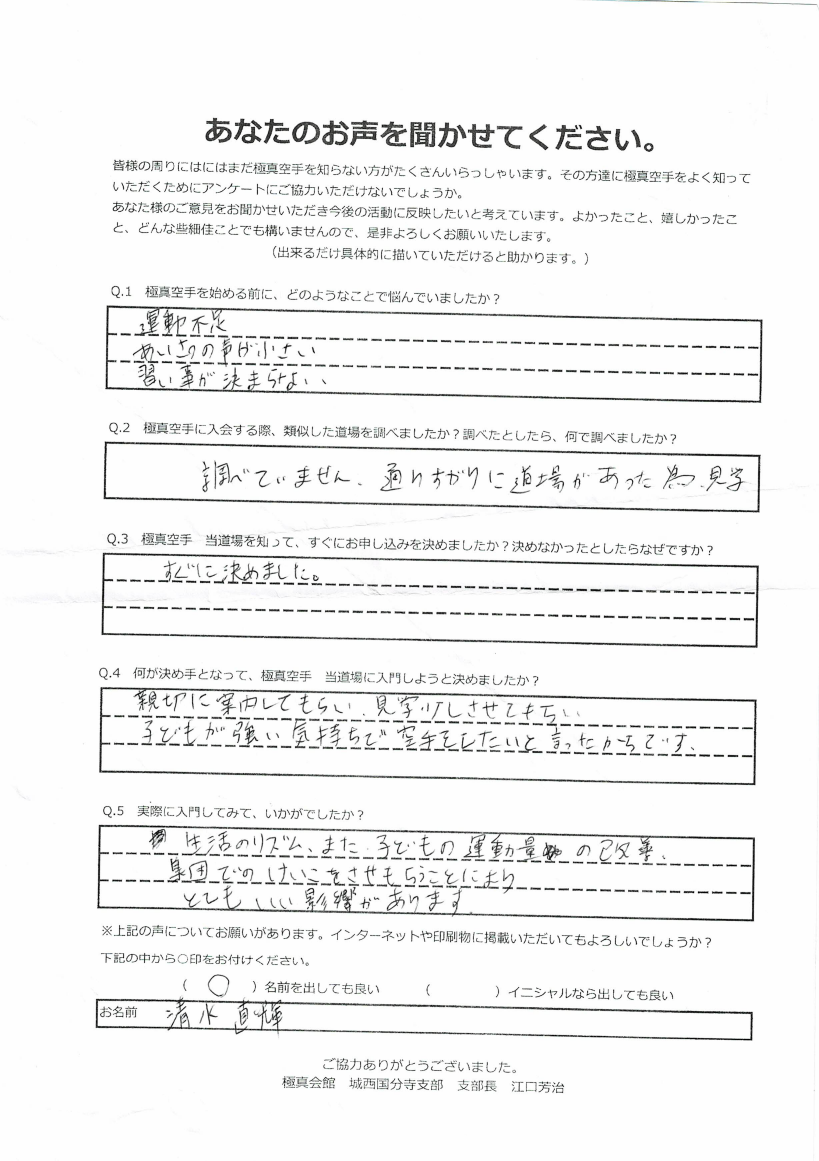 あなたのお声を聞かせてください。
皆様の周りにはにはまだ極真空手を知らない方がたくさんいらっしゃいます。その方達に極真空手をよく知って
いただくためにアンケートにご協力いただけないでしょうか。
あなた様のご意見をお聞かせいただき今後の活動に反映したいと考えています。よかったこと、嬉しかったこ
と、どんな些細佳ことでも構いませんので、是非よろしくお願いいたします。
(出来るだけ具体的に描いていただけると助かります。)
Q.1 極真空手を始める前に、どのようなことで悩んでいましたか?
運動不足
あいさつの声が小さい
習い事が決まらない
Q.2 極真空手に入会する際、類似した道場を調べましたか?調べたとしたら、何で調べましたか?
調べていません、通りすがりに道場があった為、見学
Q.3 極真空手 当道場を知って、すぐにお申し込みを決めましたか?決めなかったとしたらなぜですか?
すぐに決めました。
Q.4 何が決め手となって、極真空手 当道場に入門しようと決めましたか?
親切に案内してもらい、見学させてもらい
子どもが強い気持ちで空手をしたいと言ったからです、
Q.5 実際に入門してみて、いかがでしたか?
生活のリズム、また子どもの運動量の改善、
集団でのけいこをさせもらうことにより
とてもいい影響があります
※上記の声についてお願いがあります。インターネットや印刷物に掲載いただいてもよろしいでしょうか?
下記の中から○印をお付けください。
( ○ )名前を出しても良い ( )イニシャルなら出しても良い
お名前 清水 直輝
ご協力ありがとうございました。
極真会館 城西国分寺支部 支部長 江口芳治